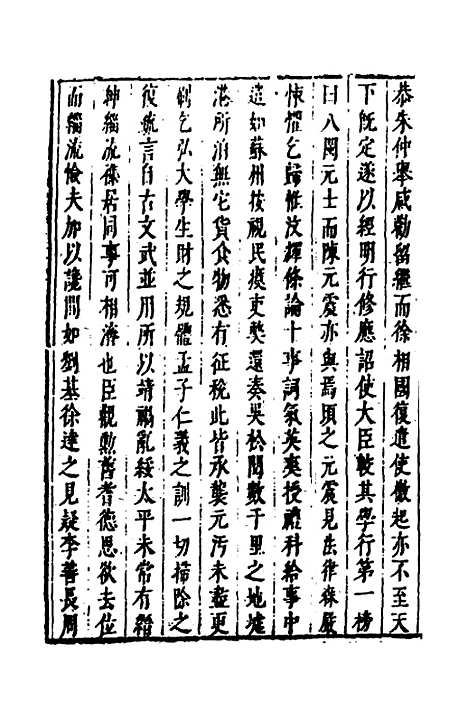 恭朱仲舉咸勸留繼而徐相國復遣使徵起亦不至天
下既定遂以經明行修應詔使大臣較其學行第一榜
曰八閩元士而陳元震亦與焉頃之元震見法律森嚴
悚懼乞歸惟汶輝條論十事詞氣英爽授禮科給事中
遣如蘇州按視民瘼吏弊還奏吳松間數千里之地墟
港所泊無它貨食物悉有征稅此皆承襲元污未盡更
制乞弘大學生財之規體孟子仁義之訓一切掃除之
復疏言自古文武並用所以靖禍亂綏太平未常有緇
紳緇流襍居同事可相濟也臣觀勲舊耆德思欲去位
而緇流憸夫加以讒間如劉基徐達之見疑李善長周